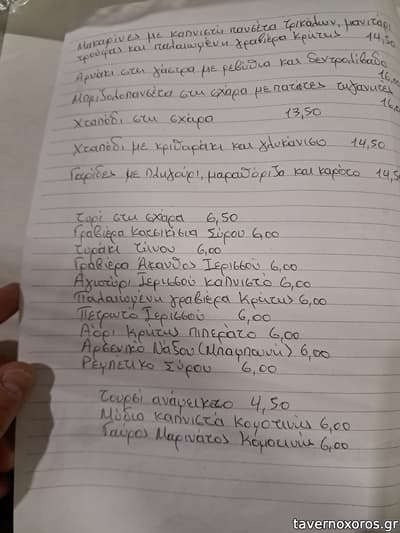 Μακαρίνες με καπνιστή πανσέτα τρικάλων, μανιτάρι
τρούφας και παλαιωμένη γραβιέρα κρήτης 14,50
Αρνάκι στη γάστρα με ρεβύθια και δεντρολίβανο
16,00
Μπριζολοπανσέτα στη σχάρα με πατάτες τηγανητές
16,0
Χταπόδι στη σχάρα 13,50
Χταπόδι με κριθαράκι και γλυκάνισο 14,50
Γαρίδες με πλιγούρι, μαραθόριζα και καρότο 14,5
Τυρί στη σχάρα 6,50
Γραβιέρα κατσικίσια Σύρου 6,00
Τυράκι Τίνου 6,00
Γραβιέρα Άκανθος Ιερισσού 6,00
Αγιοτύρι Ιερισσού καπνιστό 6,00
Παλαιωμένη γραβιέρα Κρήτης 6,00
Πετρωτό Ιερισσού 6,00
Αόρι Κρήτης πιπεράτο 6,00
Αρσενικό Νάξου (Μπαμπουνή) 6,00
Ρεμπέτικο Σύρου 6,00
Τουρσί ανάμεικτο 4,50
Μύδια καπνιστά Κομοτινής 6,00
Γαύρος Μαρινάτος Κομοτινής 6,00
www.tavernoxoros.gr